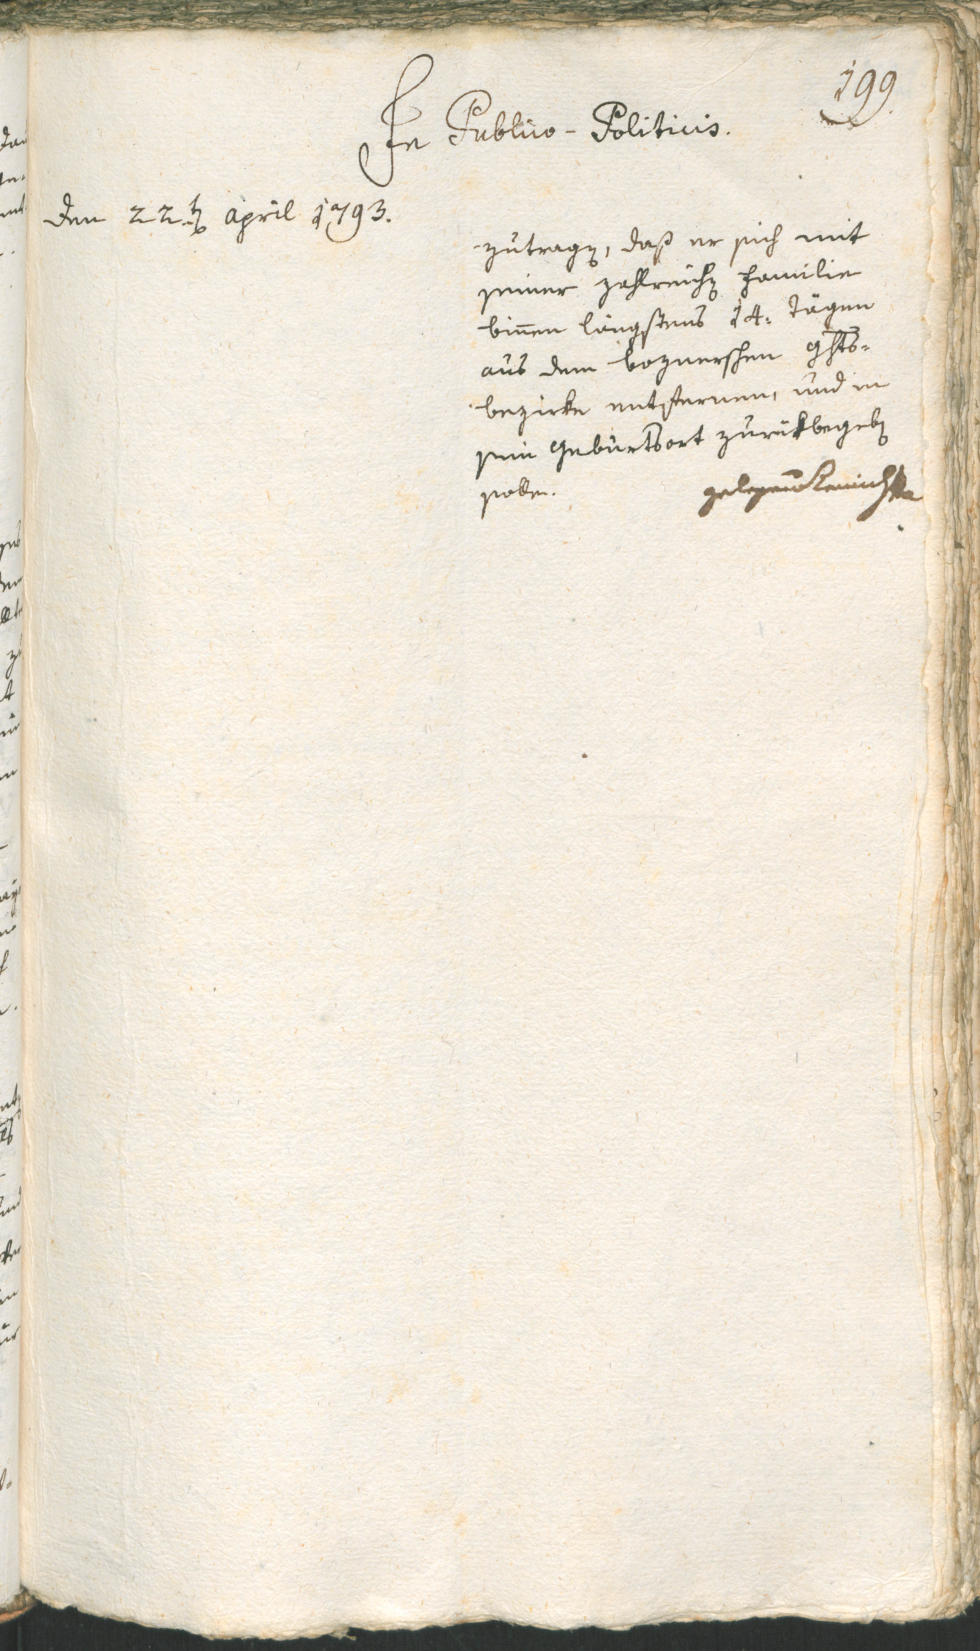 199.
In Publico-Politicis.
den 22.t april 1793.
zutragen, daß er sich mit
seiner zahlreichen Familie
binnen längstens 14: Tägen
aus dem boznerischen ghts-
bezirke entfernen, und in
sein Geburtsort zurükbegeben
solle.